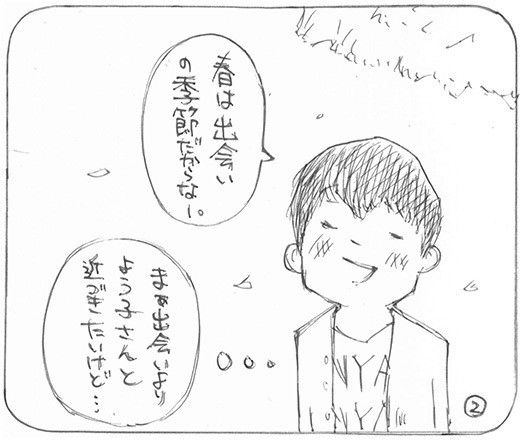 春は出会い
の季節だからな。
まぁ出会いより
よう子さんと
近づきたいけど…
NYA
NYA
②